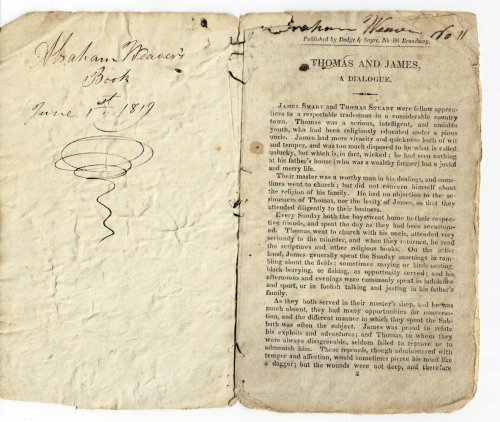 Abraham Weaver's
Book
June 1st 1819
Abraham Weaver No 11
Published by Dodge & Sayre, No. 86 Broadway.
THOMAS AND JAMES,
A DIALOGUE.
JAMES SMART and THOMAS STEADY were fellow appren-
tices to a respectable tradesman in a considerable country
town. Thomas was a serious, intelligent, and amiable
youth, who had been religiously educated under a pious
uncle. James had more vivacity and quickness both of wit
and temper, and was too much disposed to be what is called
unlucky, but which is, in fact, wicked; he had seen nothing
at his father's house (who was a wealthy farmer) but a jovial
and merry life.
Their master was a worthy man in his dealings, and some-
times went to church; but did not concern himself about
the religion of his family. He had no objection to the se-
riousness of Thomas, nor the levity of James, so that they
attended diligently to their business.
Every Sunday both the boys went home to their respec-
tive friends, and spent the day as they had been accustom-
ed. Thomas went to church with his uncle, attended very
seriously to the minister, and when they returned, he read
the scriptures and other religious books. On the other
hand, James generally spent the Sunday mornings in ram-
bling about the fields; sometimes swaying or birds nesting,
black-berrying, or fishing, as opportunity served; and his
afternoons and evenings were commonly spent in indolence
and sport, or in foolish talking and jesting in his father's
family.
As they both served in their master's shop, and he was
much absent, they had many opportunities for conversa-
tion, and the different manner in which they spent the Sab-
bath was often the subject. James was proud to relate
his exploits and adventures; and Thomas, to whom they
were always disagreeable, seldom failed to reprove or to
admonish him. These reproofs, though administered with
temper and affection, would sometimes pierce his mind like
a dagger; but the wounds were not deep, and therefore
2